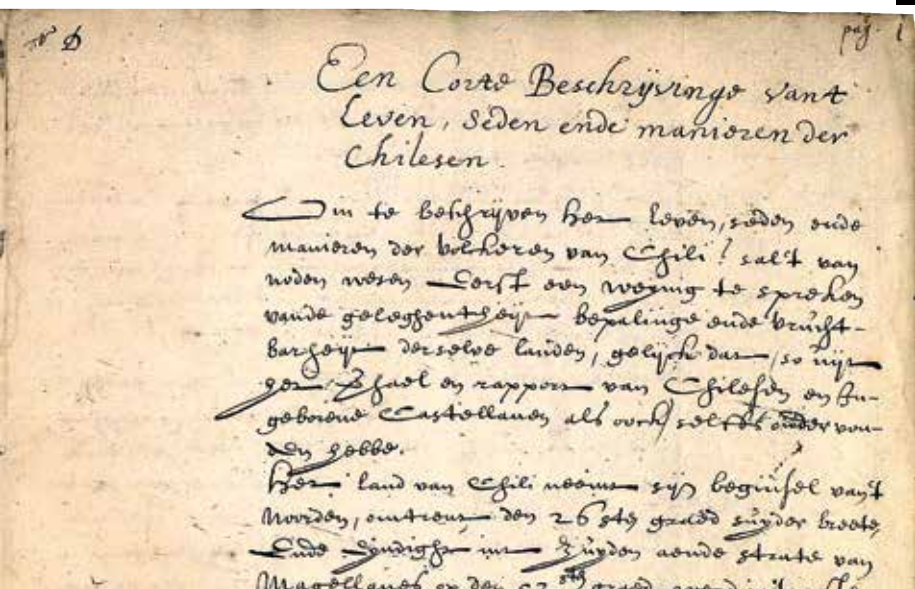 N° D
pag. 1
Een Corte Beschrijvinge vant
Leven, Seden ende manieren der
Chilesen.
Om te beschrijven het leven, seden ende
manieren der volckeren van Chili? sal't van
noden wesen Eerst een weijnig te spreken
vande geleghentheijt bepalinge ende vrucht-
barheijt derselve landen, gelijck dat so uijt
het en rapport van Chilesen en In-
geborene Castellanen als oock selffs ondervon-
den hebbe.
Het land van Chili neemt sijn beginsel van't
Noorden, omtrent den 26 sten graed suijder breete,
Ende Eyndight int Zuijden aende strate van
Magellanes op den sten graed